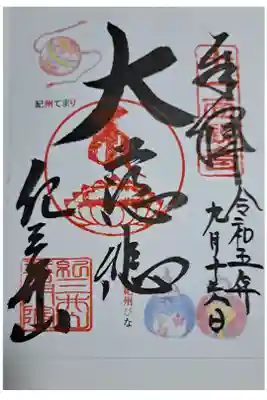 奉拝
令和五年
九月十六日
大慈悲
紀三井山
紀州てまり
紀州びな